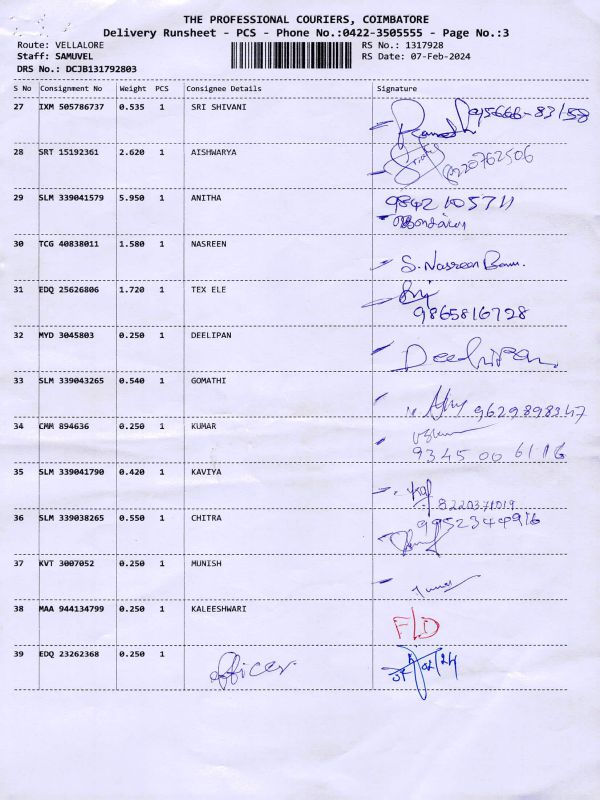 THE PROFESSIONAL COURIERS, COIMBATORE
Delivery Runsheet - PCS - Phone No.:0422-3505555 - Page No.:3
Route: VELLALORE RS No.: 1317928
Staff: SAMUVEL RS Date: 07-Feb-2024
DRS No.: DCJB131792803
S No Consignment No Weight PCS Consignee Details Signature
27 IXM 505786737 0.535 1 SRI SHIVANI
Ramesh
28 SRT 15192361 2.620 1 AISHWARYA
29 SLM 339041579 5.950 1 ANITHA 9842105711
30 TCG 40838011 1.580 1 NASREEN
S. Nasreen Banu.
31 EDQ 25626806 1.720 1 TEX ELE
9865816728
32 MYD 3045803 0.250 1 DEELIPAN
Deelipan.
33 SLM 339043265 0.540 1 GOMATHI
9629898347
34 CMM 894636 0.250 1 KUMAR
9345 00 6116
35 SLM 339041790 0.420 1 KAVIYA
8220371019
36 SLM 339038265 0.550 1 CHITRA 9952344916
37 KVT 3007052 0.250 1 MUNISH
38 MAA 944134799 0.250 1 KALEESHWARI
FLD
39 EDQ 23262368 0.250 1 office.